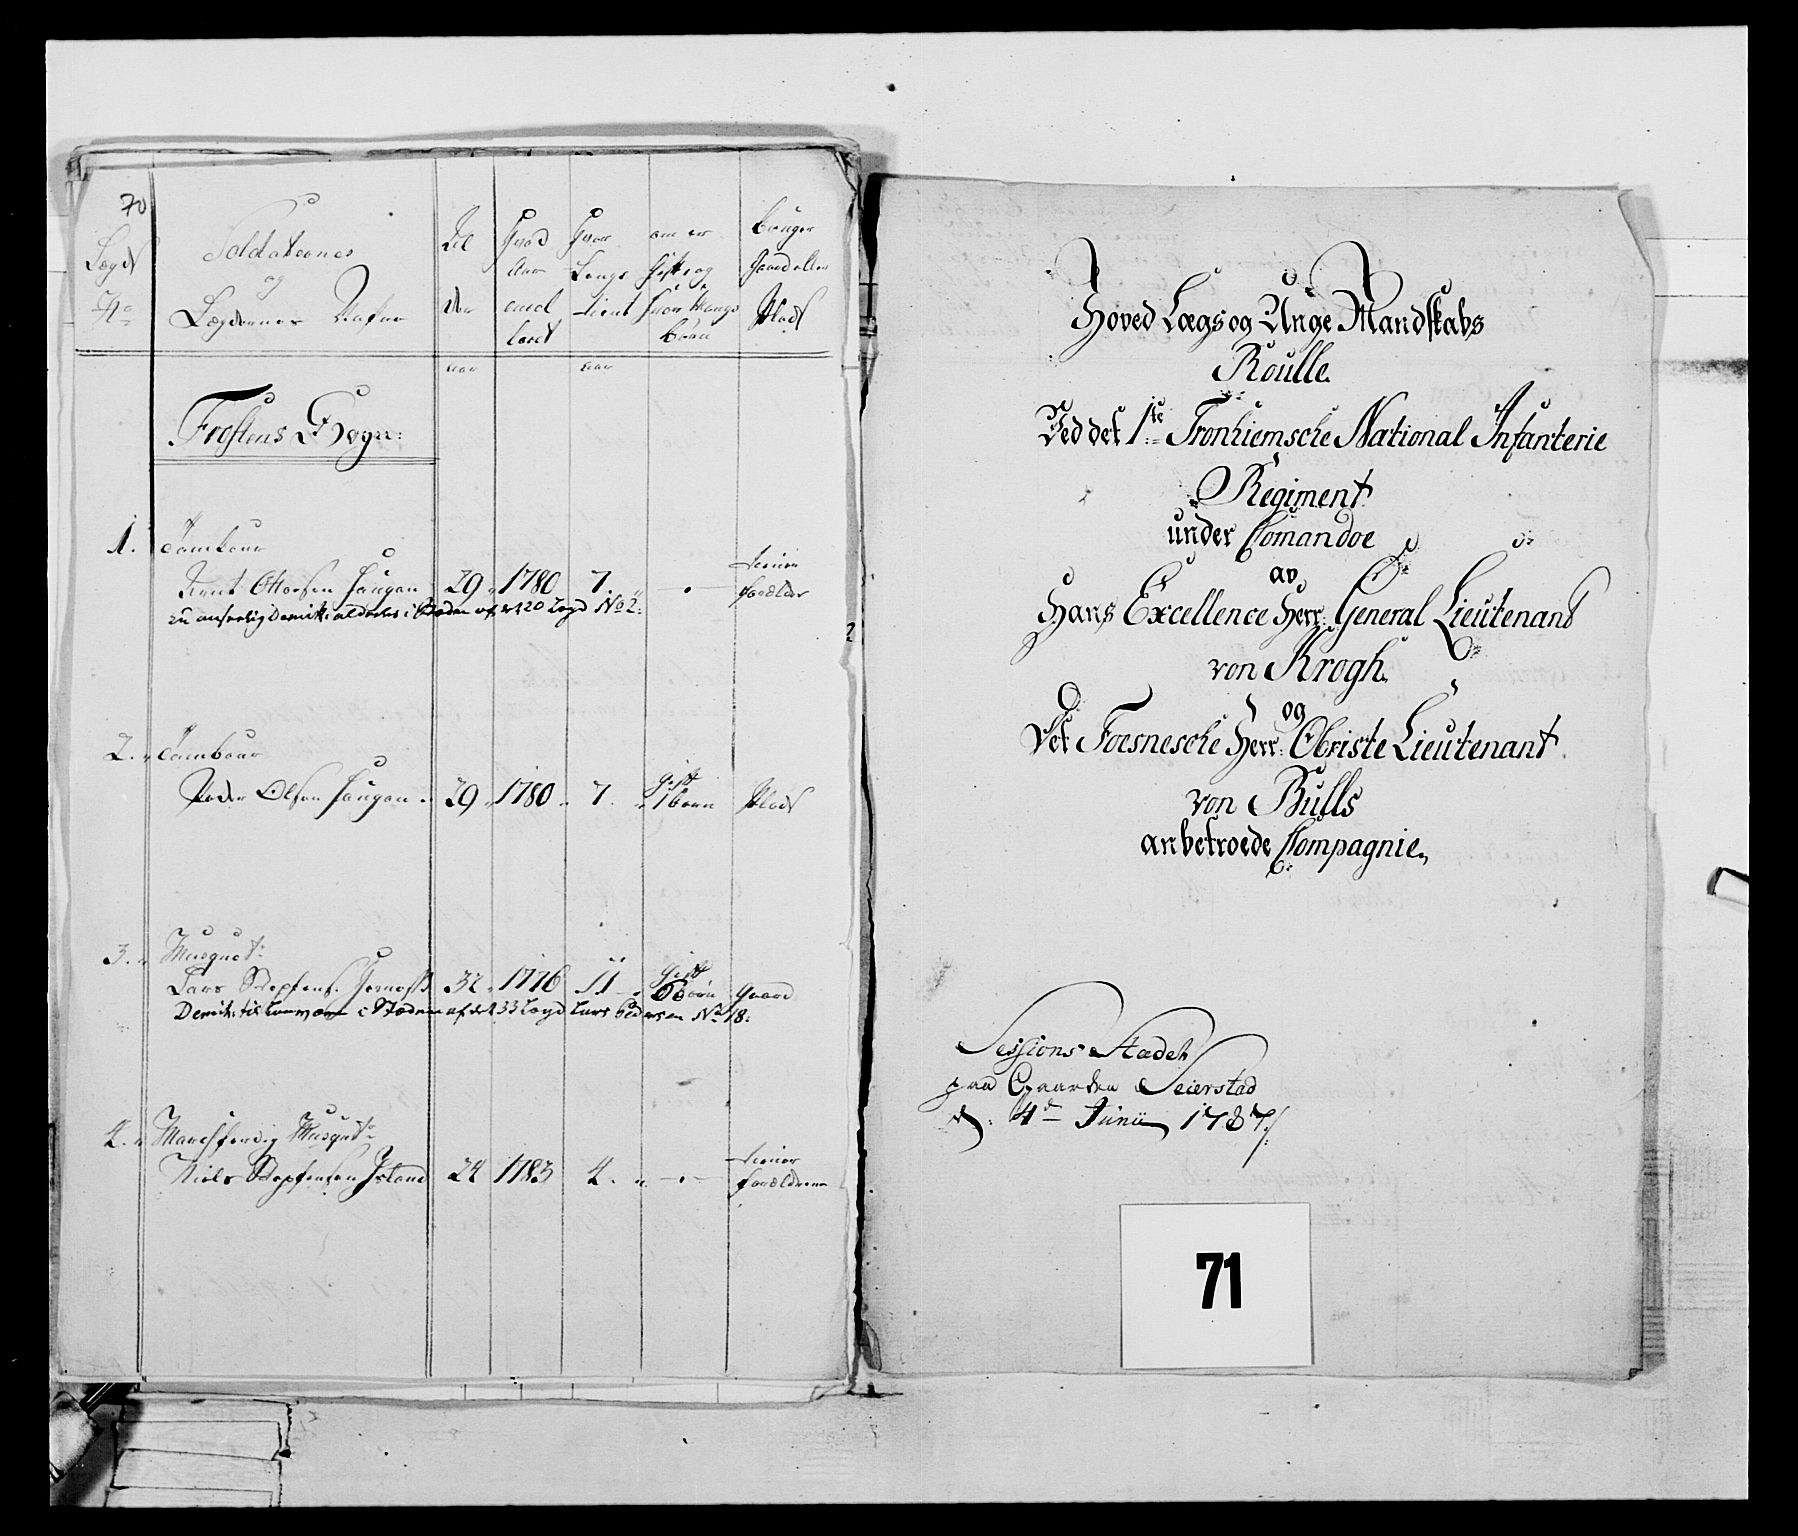 70
Lægd
No
Soldaternes
og
Lægdernes Nafne
Al
der
Hvad
Aar
end
Hvor
Længe
tient
om er
gift og
hvor Mange
børn
bruger
Gaard eller
Plads
aar
aar
Frostens Sogn:
1. Tambour
29 1780 7. - . -
forælder
No 2:
2. Tambour
Peder Olsen Haugan 29 1780 7. gift 1 børn Plads
3. Musquet:
Lars 32 1776 11 gift børn Gaard
i Stæden af det 33 Lægd Lars Pedersen No 18:
4. Marchferdig Musqut:
Niels 24 1783 4. - . -
forældrene
Hoved Lægs og Unge Mandskabs
Roulle
Ved det 1te Tronhiemsche National Infanterie
Regiment
under Comandoe
av
Hans Excellence Herr: General Lieutenant
von Krogh.
og
Det Foesnesche Herr: Obriste Lieutenant
von Bülls
anbetroede Compagnie
Sessions Stædet
paa Gaarden Seierstad
d: 4de Junii 1787
71